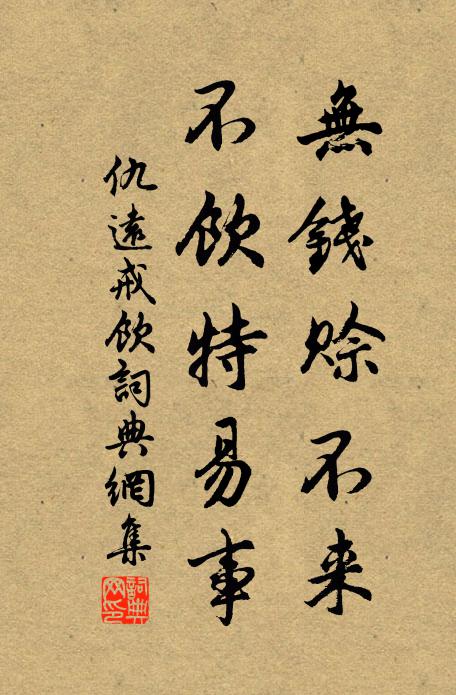 無錢賒不来
不飲特易事
仇遠戒飲詞典網集
詞典网印